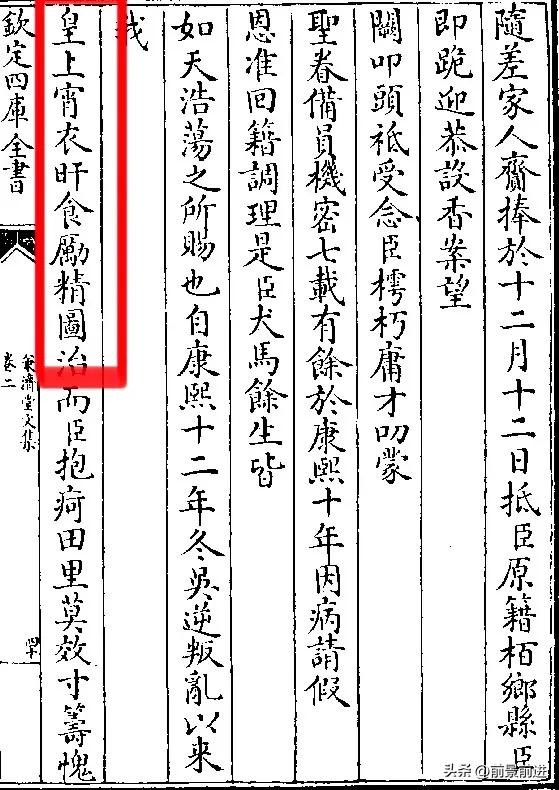 隨差家人齎捧於十二月十二日抵臣原籍栢鄉縣臣
即跪迎恭設香案望
闕叩頭祗受念臣樗朽庸才叨蒙
聖眷備員機密七載有餘於康熙十年因病請假
恩准回籍調理是臣犬馬餘生皆
如天浩蕩之所賜也自康熙十二年冬吳逆叛亂以来
我
皇上宵衣旰食勵精圖治而臣抱疴田里莫效寸籌愧
欽定四庫全書
兼濟堂文集
卷二
头条 @前景前进